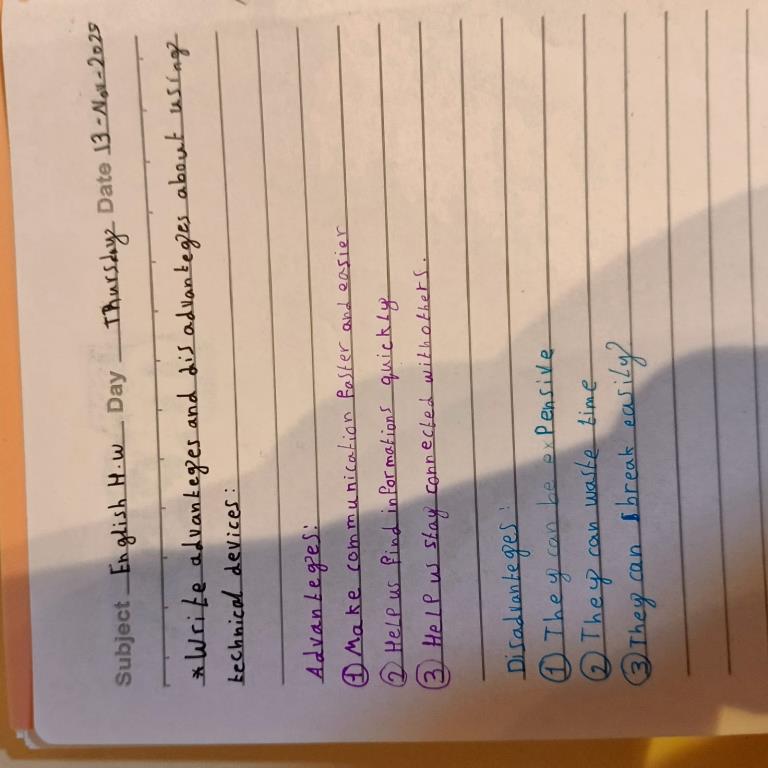 Subject English H.W Day Thursday Date 13-Nov-2025
*Write advanteges and disadvanteges about using
technical devices:
Advanteges:
① Make communication faster and easier
② Help us find informations quickly
③ Help us stay connected with others.
Disadvanteges:
① They can be expensive
② They can waste time
③ They can break easily?